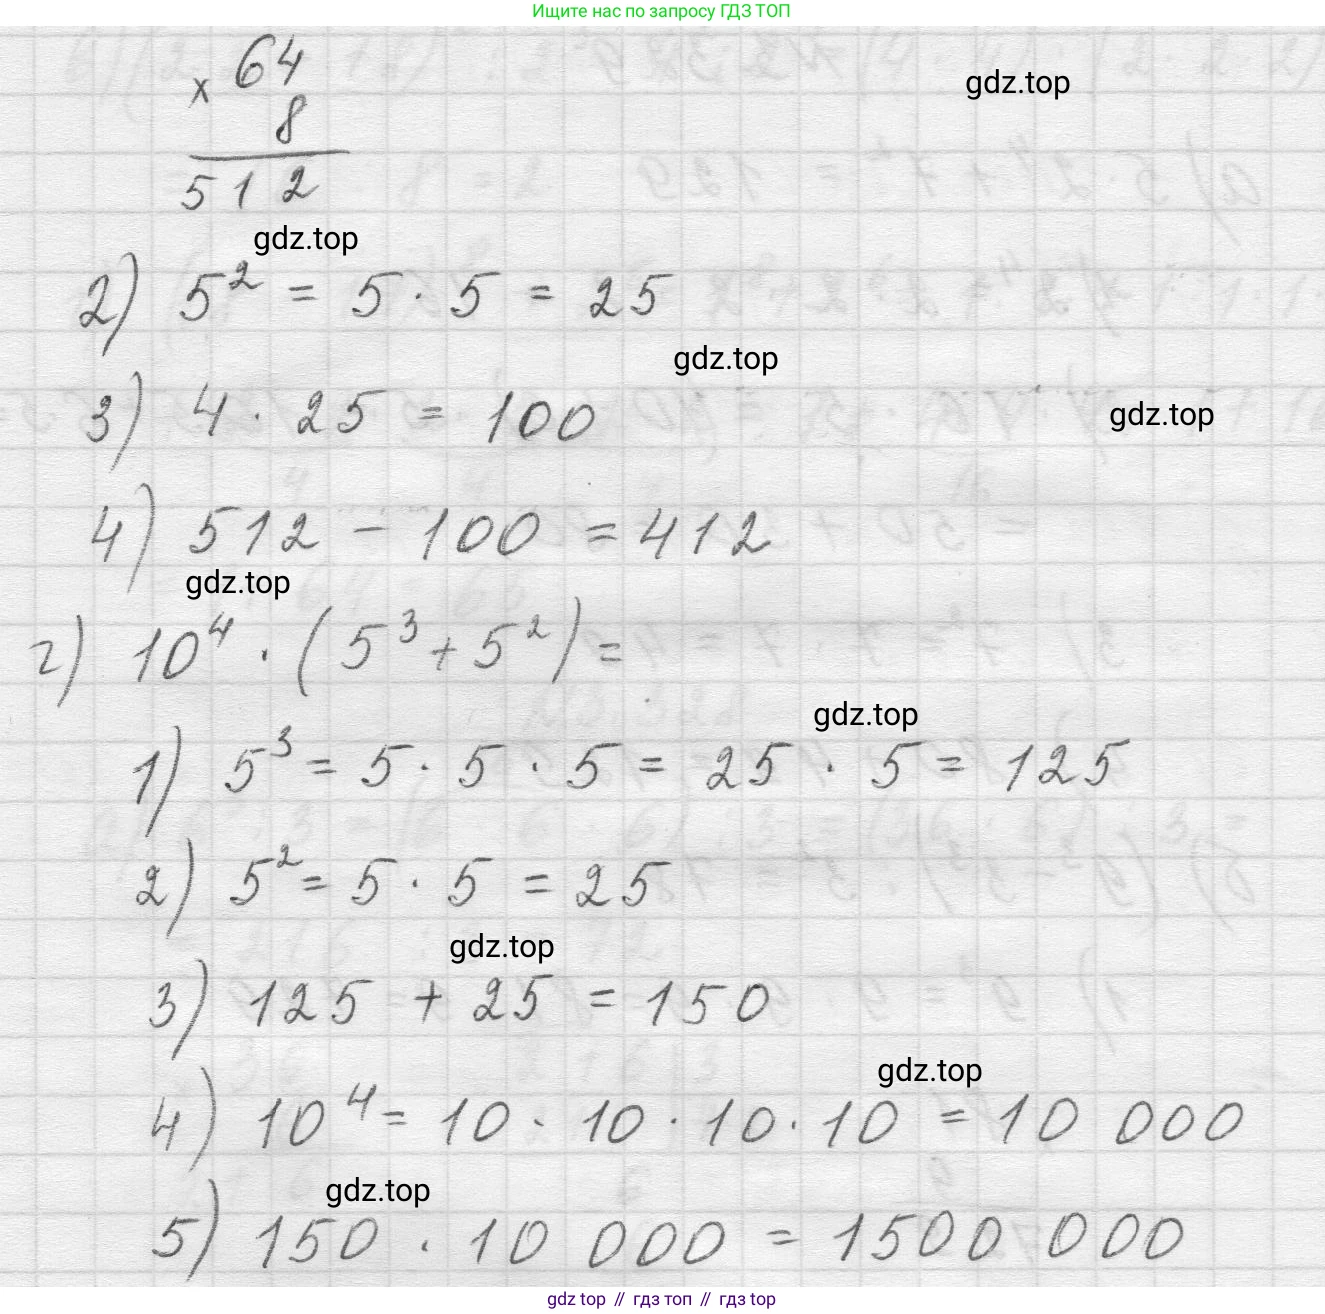 Ищите нас по запросу ГДЗ ТОП
× 64
gdz.top
8
512
gdz.top
2) 5² = 5 · 5 = 25
gdz.top
3) 4 · 25 = 100
gdz.top
4) 512 − 100 = 412
gdz.top
г) 10⁴ · (5³ + 5²) =
gdz.top
1) 5³ = 5 · 5 · 5 = 25 · 5 = 125
2) 5² = 5 · 5 = 25
gdz.top
3) 125 + 25 = 150
gdz.top
4) 10⁴ = 10 · 10 · 10 · 10 = 10 000
gdz.top
5) 150 · 10 000 = 1500 000
gdz top // гдз топ // гдз top